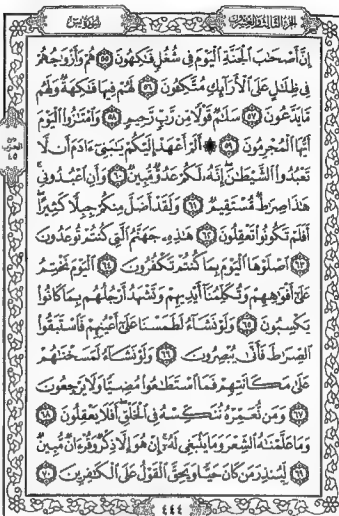 الجزء الثالث والعشرون
سورة يس
إِنَّ أَصْحَٰبَ ٱلْجَنَّةِ ٱلْيَوْمَ فِى شُغُلٍ فَٰكِهُونَ ٥٥ هُمْ وَأَزْوَٰجُهُمْ
فِى ظِلَٰلٍ عَلَى ٱلْأَرَآئِكِ مُتَّكِـُٔونَ ٥٦ لَهُمْ فِيهَا فَٰكِهَةٌ وَلَهُم
مَّا يَدَّعُونَ ٥٧ سَلَٰمٌ قَوْلًا مِّن رَّبٍّ رَّحِيمٍ ٥٨ وَٱمْتَٰزُوا۟ ٱلْيَوْمَ
أَيُّهَا ٱلْمُجْرِمُونَ ٥٩ ۞ أَلَمْ أَعْهَدْ إِلَيْكُمْ يَٰبَنِىٓ ءَادَمَ أَن لَّا
تَعْبُدُوا۟ ٱلشَّيْطَٰنَ إِنَّهُۥ لَكُمْ عَدُوٌّ مُّبِينٌ ٦٠ وَأَنِ ٱعْبُدُونِى
هَٰذَا صِرَٰطٌ مُّسْتَقِيمٌ ٦١ وَلَقَدْ أَضَلَّ مِنكُمْ جِبِلًّا كَثِيرًا
أَفَلَمْ تَكُونُوا۟ تَعْقِلُونَ ٦٢ هَٰذِهِۦ جَهَنَّمُ ٱلَّتِى كُنتُمْ تُوعَدُونَ
٦٣ ٱصْلَوْهَا ٱلْيَوْمَ بِمَا كُنتُمْ تَكْفُرُونَ ٦٤ ٱلْيَوْمَ نَخْتِمُ
عَلَىٰٓ أَفْوَٰهِهِمْ وَتُكَلِّمُنَآ أَيْدِيهِمْ وَتَشْهَدُ أَرْجُلُهُم بِمَا كَانُوا۟
يَكْسِبُونَ ٦٥ وَلَوْ نَشَآءُ لَطَمَسْنَا عَلَىٰٓ أَعْيُنِهِمْ فَٱسْتَبَقُوا۟
ٱلصِّرَٰطَ فَأَنَّىٰ يُبْصِرُونَ ٦٦ وَلَوْ نَشَآءُ لَمَسَخْنَٰهُمْ
عَلَىٰ مَكَانَتِهِمْ فَمَا ٱسْتَطَٰعُوا۟ مُضِيًّا وَلَا يَرْجِعُونَ
٦٧ وَمَن نُّعَمِّرْهُ نُنَكِّسْهُ فِى ٱلْخَلْقِ أَفَلَا يَعْقِلُونَ ٦٨
وَمَا عَلَّمْنَٰهُ ٱلشِّعْرَ وَمَا يَنۢبَغِى لَهُۥٓ إِنْ هُوَ إِلَّا ذِكْرٌ وَقُرْءَانٌ مُّبِينٌ
٦٩ لِّيُنذِرَ مَن كَانَ حَيًّا وَيَحِقَّ ٱلْقَوْلُ عَلَى ٱلْكَٰفِرِينَ ٧٠
٤٤٤
الحزب
٤٥